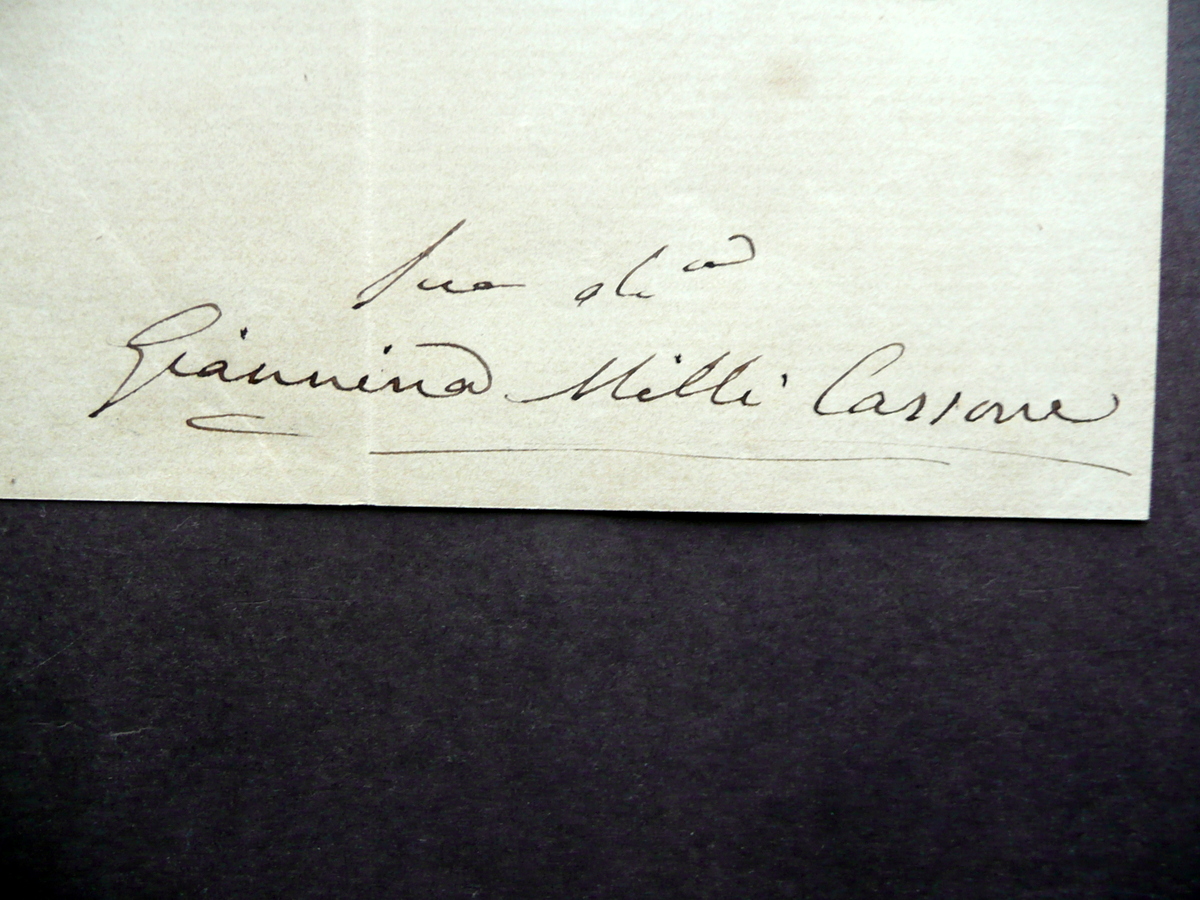 Sua
Giannina Milli Cassone